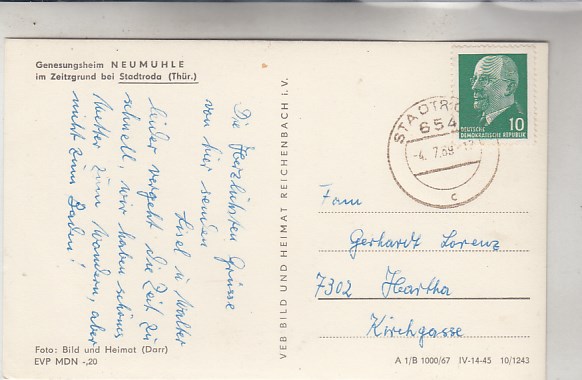 Genesungsheim NEUMÜHLE
im Zeitzgrund bei Stadtroda (Thür.)
Die herzlichsten Grüsse
von hier senden
Lisel u Walter
leider vergeht die Zeit zu
schnell, wir haben schönes
Wetter zum Wandern, aber
nicht zum Baden!
VEB BILD UND HEIMAT REICHENBACH i. V.
STADTRO
654
-4. 7. 69
c
10
DEUTSCHE
DEMOKRATISCHE REPUBLIK
Fam
Gerhardt Lorenz
7302 Hartha
Kirchgasse
Foto: Bild und Heimat (Darr)
EVP MDN -,20
A 1/B 1000/67 IV-14-45 10/1243